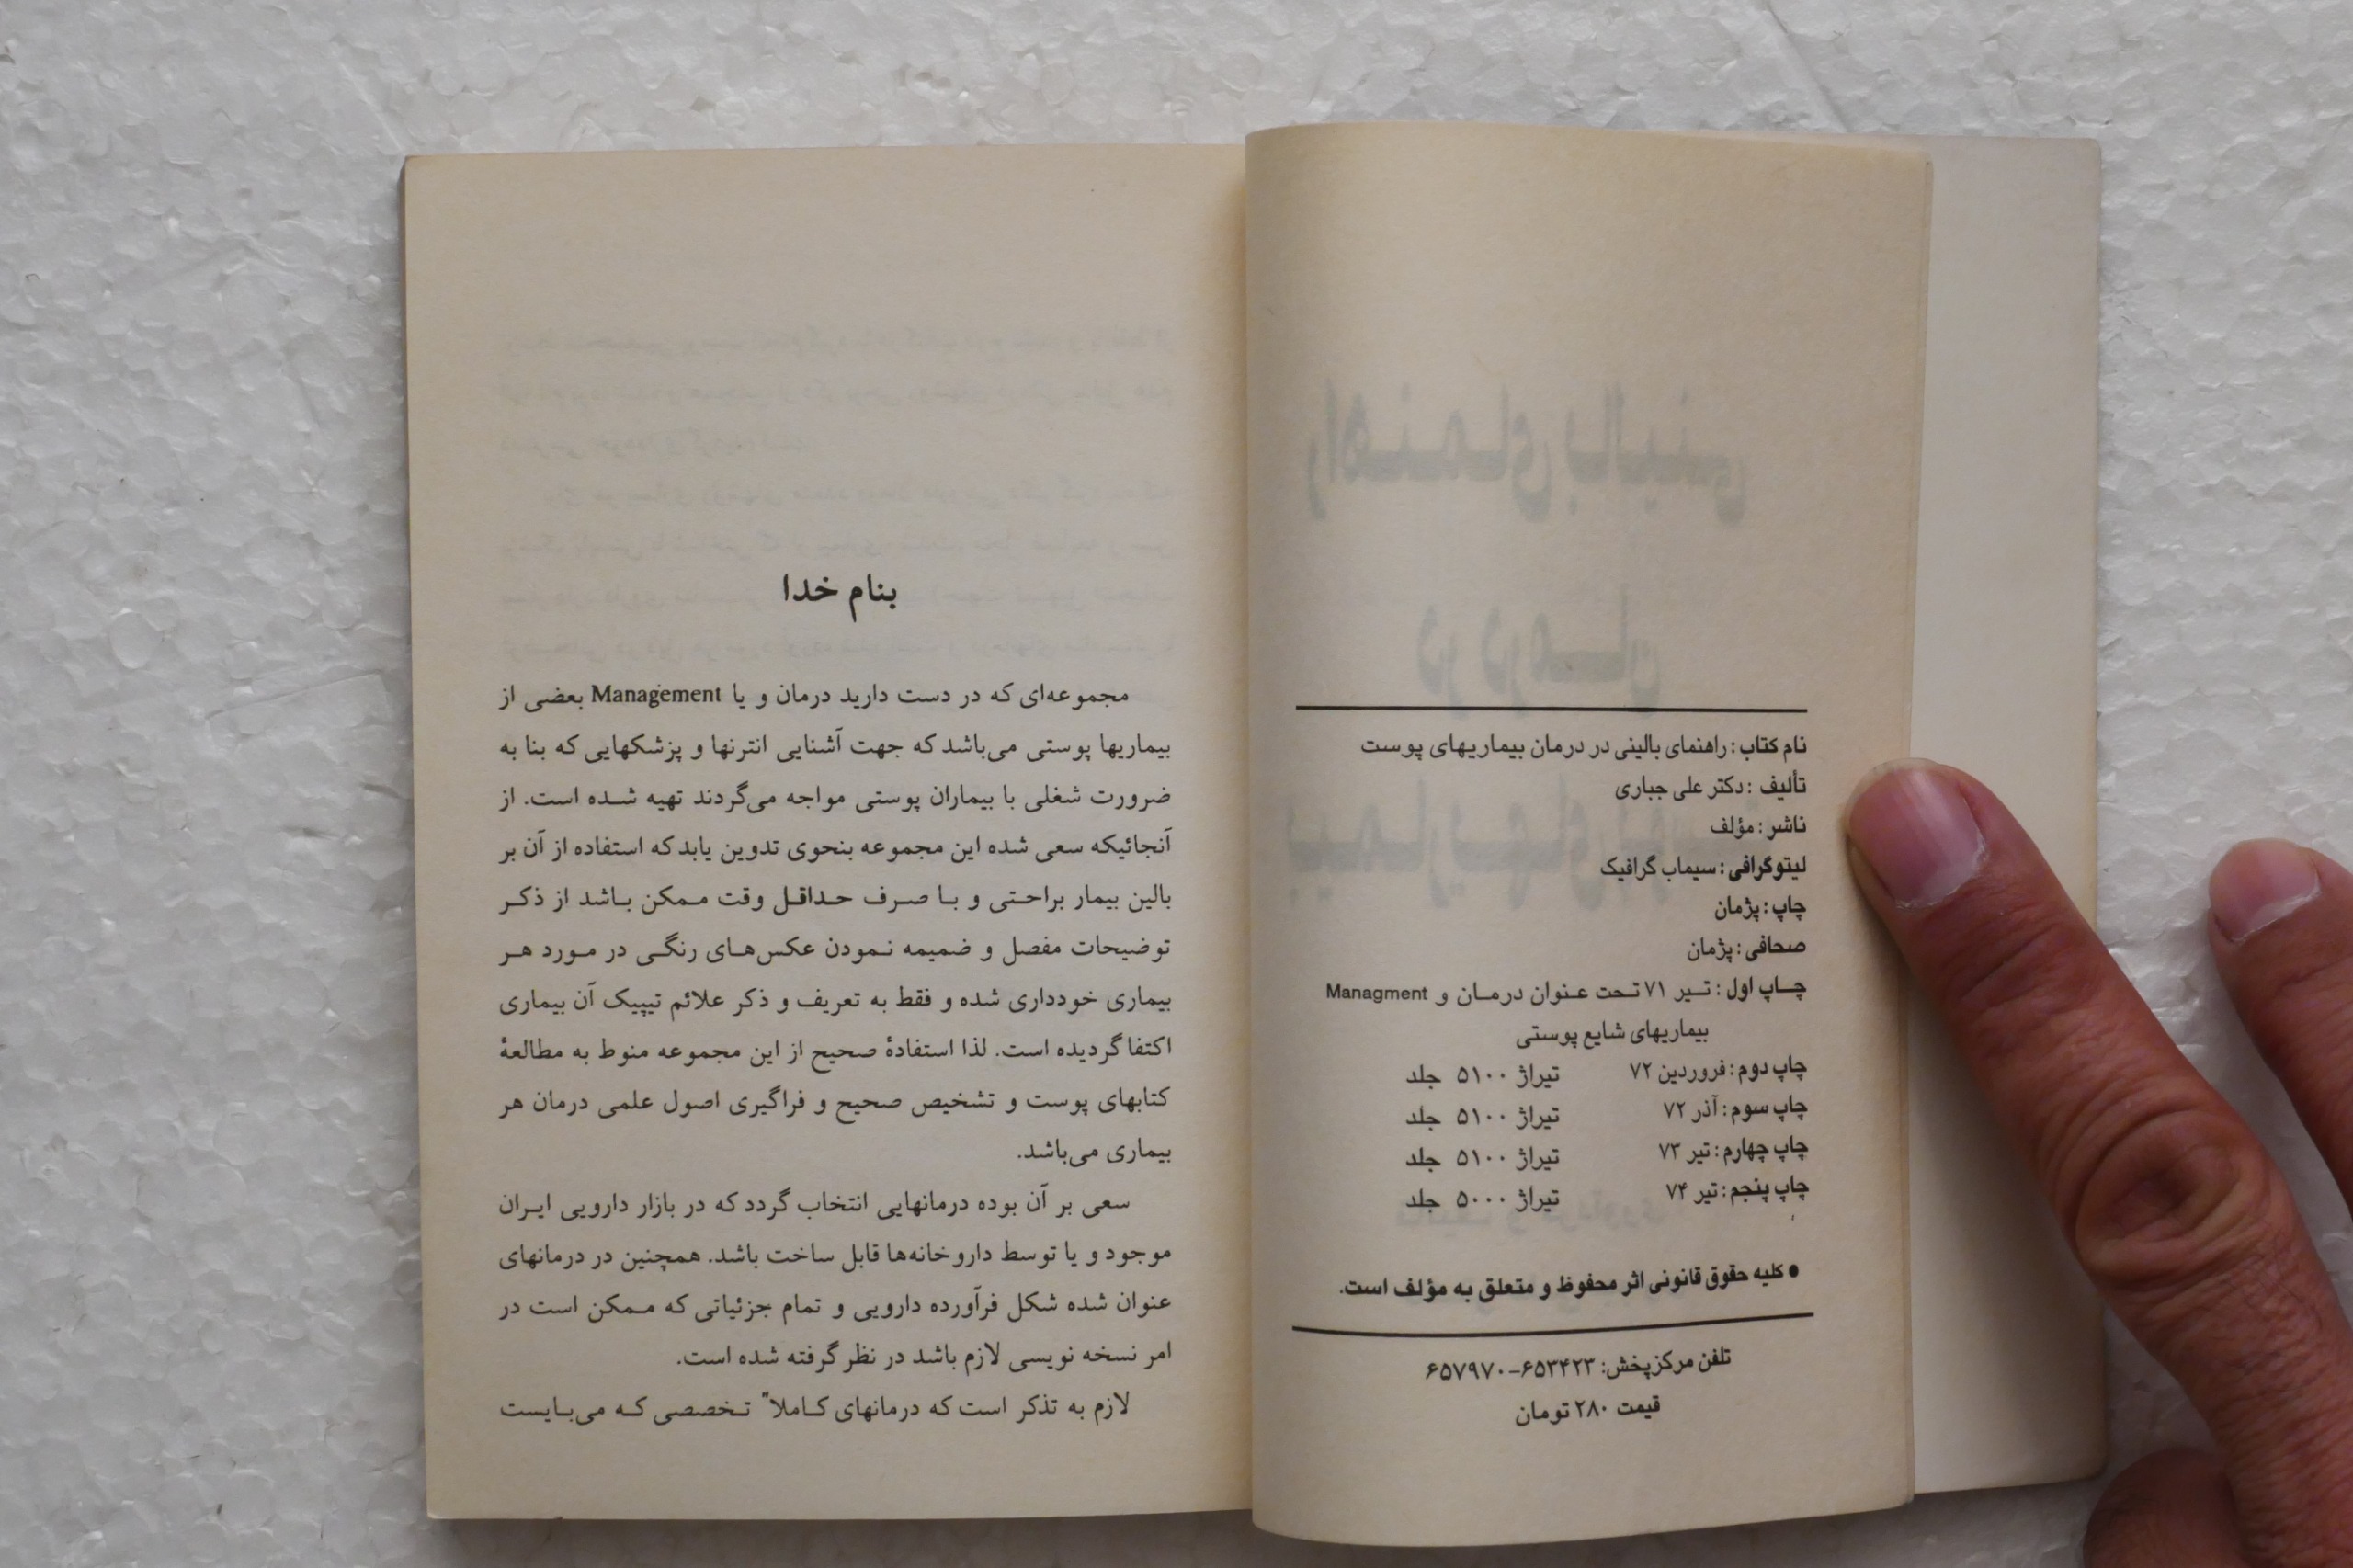 نام کتاب : راهنمای بالینی در درمان بیماریهای پوست
تألیف : دکتر علی جباری
ناشر : مؤلف
لیتوگرافی : سیماب گرافیک
چاپ : پژمان
صحافی : پژمان
چـاپ اول : تـیر ۷۱ تـحت عـنوان درمـان و Managment
بیماریهای شایع پوستی
چاپ دوم : فروردین ۷۲ تیراژ ۵۱۰۰ جلد
چاپ سوم : آذر ۷۲ تیراژ ۵۱۰۰ جلد
چاپ چهارم : تیر ۷۳ تیراژ ۵۱۰۰ جلد
چاپ پنجم : تیر ۷۴ تیراژ ۵۰۰۰ جلد
● کلیه حقوق قانونی اثر محفوظ و متعلق به مؤلف است.
تلفن مرکز پخش: ۶۵۳۴۲۳-۶۵۷۹۷۰
قیمت ۲۸۰ تومان
بنام خدا
مجموعه‌ای که در دست دارید درمان و یا Management بعضی از
بیماریها پوستی می‌باشد که جهت آشنایی انترنها و پزشکهایی که بنا به
ضرورت شغلی با بیماران پوستی مواجه می‌گردند تهیه شـده است. از
آنجائیکه سعی شده این مجموعه بنحوی تدوین یابد که استفاده از آن بر
بالین بیمار براحـتی و بـا صـرف حـداقـل وقت مـمکن بـاشد از ذکـر
توضیحات مفصل و ضمیمه نـمودن عکس‌هـای رنگـی در مـورد هـر
بیماری خودداری شده و فقط به تعریف و ذکر علائم تیپیک آن بیماری
اکتفا گردیده است. لذا استفادهٔ صحیح از این مجموعه منوط به مطالعهٔ
کتابهای پوست و تشخیص صحیح و فراگیری اصول علمی درمان هر
بیماری می‌باشد.
سعی بر آن بوده درمانهایی انتخاب گردد که در بازار دارویی ایـران
موجود و یا توسط داروخانه‌ها قابل ساخت باشد. همچنین در درمانهای
عنوان شده شکل فرآورده دارویی و تمام جزئیاتی که مـمکن است در
امر نسخه نویسی لازم باشد در نظر گرفته شده است.
لازم به تذکر است که درمانهای کـاملا" تـخصصی کـه می‌بـایست